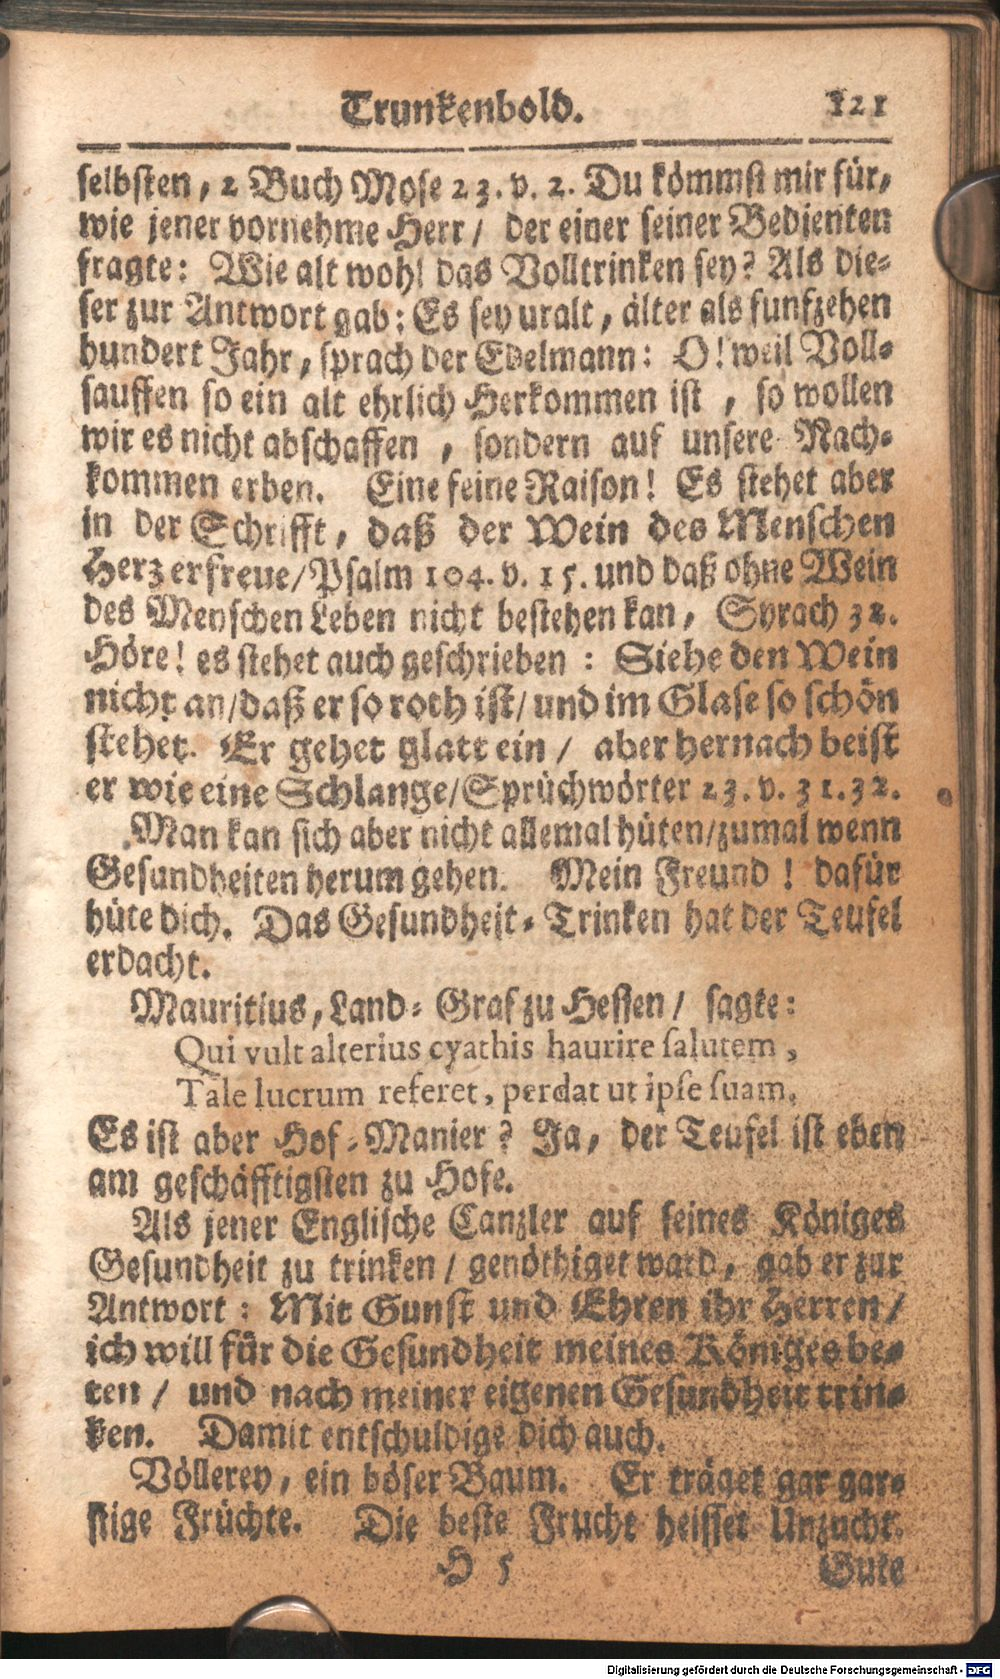 Trunkenbold. 121
selbsten, 2 Buch Mose 23. v. 2. Du kömmst mir für,
wie jener vornehme Herr / der einer seiner Bedienten
fragte: Wie alt wohl das Volltrinken sey? Als die-
ser zur Antwort gab: Es sey uralt, älter als funfzehen
hundert Jahr, sprach der Edelmann: O! weil Voll-
sauffen so ein alt ehrlich Herkommen ist, so wollen
wir es nicht abschaffen, sondern auf unsere Nach-
kommen erben. Eine feine Raison! Es stehet aber
in der Schrifft, daß der Wein des Menschen
Herz erfreue/Psalm 104. v. 15. und daß ohne Wein
des Menschen Leben nicht bestehen kan, Syrach 32.
Höre! es stehet auch geschrieben: Siehe den Wein
nicht an/daß er so roth ist/und im Glase so schön
stehet. Er gehet glatt ein / aber hernach beist
er wie eine Schlange/Sprüchwörter 23. v. 31. 32.
Man kan sich aber nicht allemal hüten/zumal wenn
Gesundheiten herum gehen. Mein Freund! dafür
hüte dich. Das Gesundheit-Trinken hat der Teufel
erdacht.
Mauritius, Land-Graf zu Hessen / sagte:
Qui vult alterius cyathis haurire salutem,
Tale lucrum referet, perdat ut ipse suam.
Es ist aber Hof-Manier? Ja, der Teufel ist eben
am geschäfftigsten zu Hofe.
Als jener Englische Canzler auf seines Königes
Gesundheit zu trinken / genöthiget ward, gab er zur
Antwort: Mit Gunst und Ehren ihr Herren /
ich will für die Gesundheit meines Königes be-
ten / und nach meiner eigenen Gesundheit trin-
ken. Damit entschuldige dich auch.
Völlerey, ein böser Baum. Er träget gar gar-
stige Früchte. Die beste Frucht heisset Unzucht.
H 5 Gute
Digitalisierung gefördert durch die Deutsche Forschungsgemeinschaft - DFG